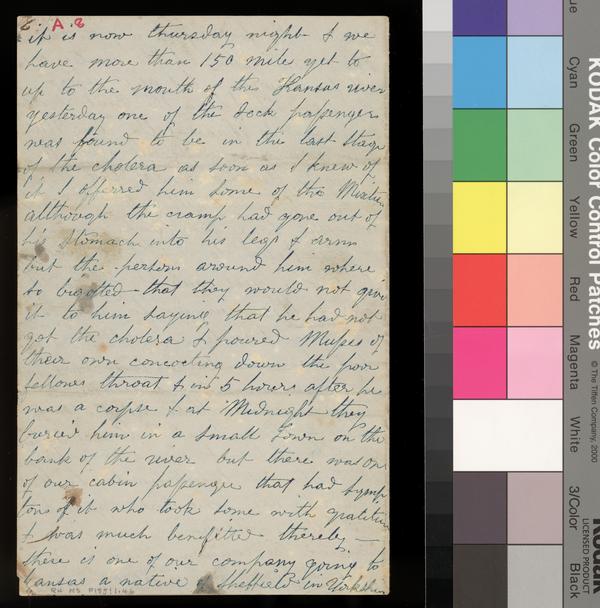 A.8
it is now thursday night & we
have more than 150 mile yet to
up to the mouth of the Kansas river
yesterday one of the deck passengers
was found to be in the last stage
of the cholera as soon as I knew of
it I offerred him some of the Mixture
although the cramp had gone out of
his stomach into his legs & arms
but the persons around him where
so bigotted that they would not give
it to him saying that he had not
got the cholera & poured Mupes of
their own concocting down the poor
fellows throat & in 5 hours after he
was a corpse & at Midnight they
buried him in a small town on the
bank of the river but there was one
of our cabin passenger that had symp
toms of it who took some with gratitude
& was much benefitted thereby —
there is one of our company going to
Kansas a native of Sheffield in Yorkshire
RH MS P135:1.46
KODAK Color Control Patches
© The Tiffen Company, 2000
Kodak
LICENSED PRODUCT
ue
Cyan
Green
Yellow
Red
Magenta
White
3/Color
Black